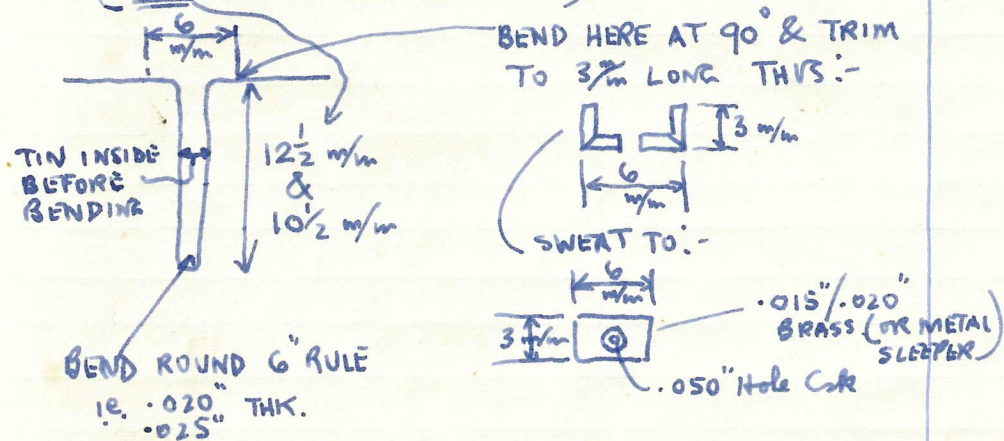 6
m/m
BEND HERE AT 90° & TRIM
TO 3m/m LONG THUS:-
TIN INSIDE
BEFORE
BENDING
12½ m/m
&
10½ m/m
3 m/m
6
m/m
SWEAT TO:-
6
m/m
3 m/m
.015"/.020"
BRASS (OR METAL
SLEEPER)
.050" Hole Csk
BEND ROUND 6" RULE
ie. .020" THK.
.025"